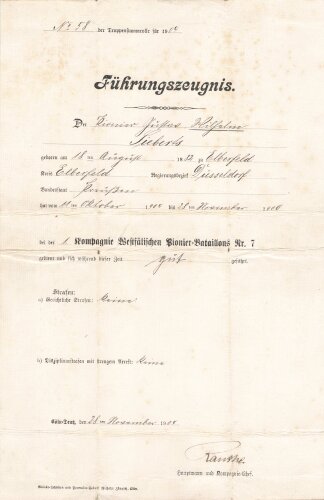 No 58 der Truppenstammrolle für 190
Führungszeugnis.
Der Pionier Gustav Wilhelm
Sieberts
geboren am 18 ten August 1882 zu Elberfeld
Kreis Elberfeld Regierungsbezirk Düsseldorf
Bundesstaat Preußen
hat vom ten Oktober bis 28 ten November
bei der 1 Kompagnie Westfälischen Pionier-Bataillons Nr. 7
gedient und sich während dieser Zeit gut geführt.
Strafen:
a) Gerichtliche Strafen: Keine
b) Disziplinarstrafen mit strengem Arrest: Keine
Cöln-Deutz, 28 ten November
Hauptmann und Kompagnie-Chef.